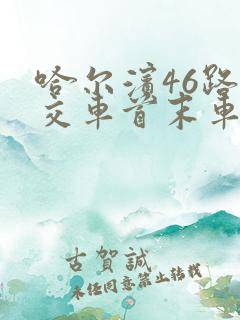 哈尔滨46路
交车首末车
古賀誠
未经同意禁止转载